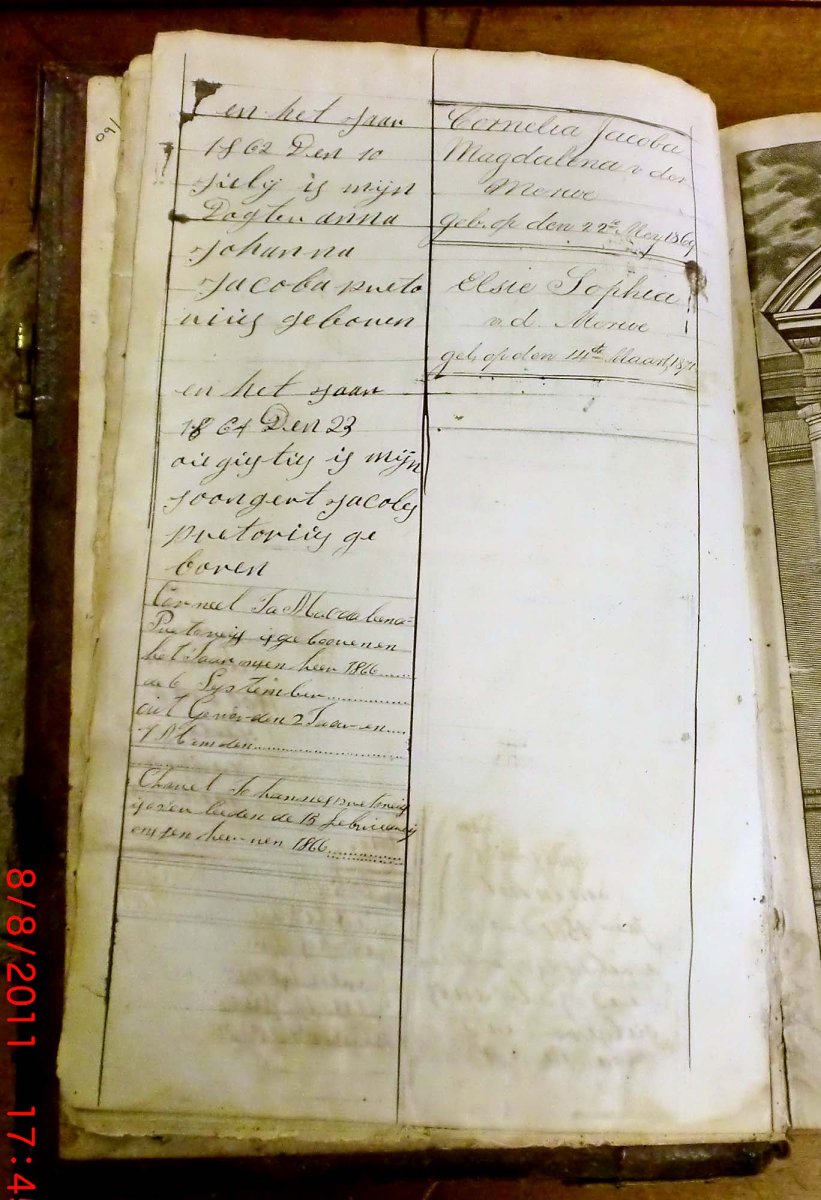 en het Jaar
1862 Den 10
Juely is mijn
Dogter anna
Johanna
Jacoba preto
rius geboren
en het Jaar
1864 Den 23
is mijn
soon gert Jacobs
pretorius ge
boren
Corneel Ja Magdalena
Pretorius is geboren en
het Jaar onsen heer 1866
de 6 September
out Geworden 2 Jaar en
7 Manden
Johannes pretorius
is overleeden de 13 februarij
onsen heer 1866
Cornelia Jacoba
Magdalena v der
Merwe
geb. op den 22e Mey 1869
Elsie Sophia
v.d. Merwe
geb. op den 14de Maart 1871
160
8/8/2011 17:4